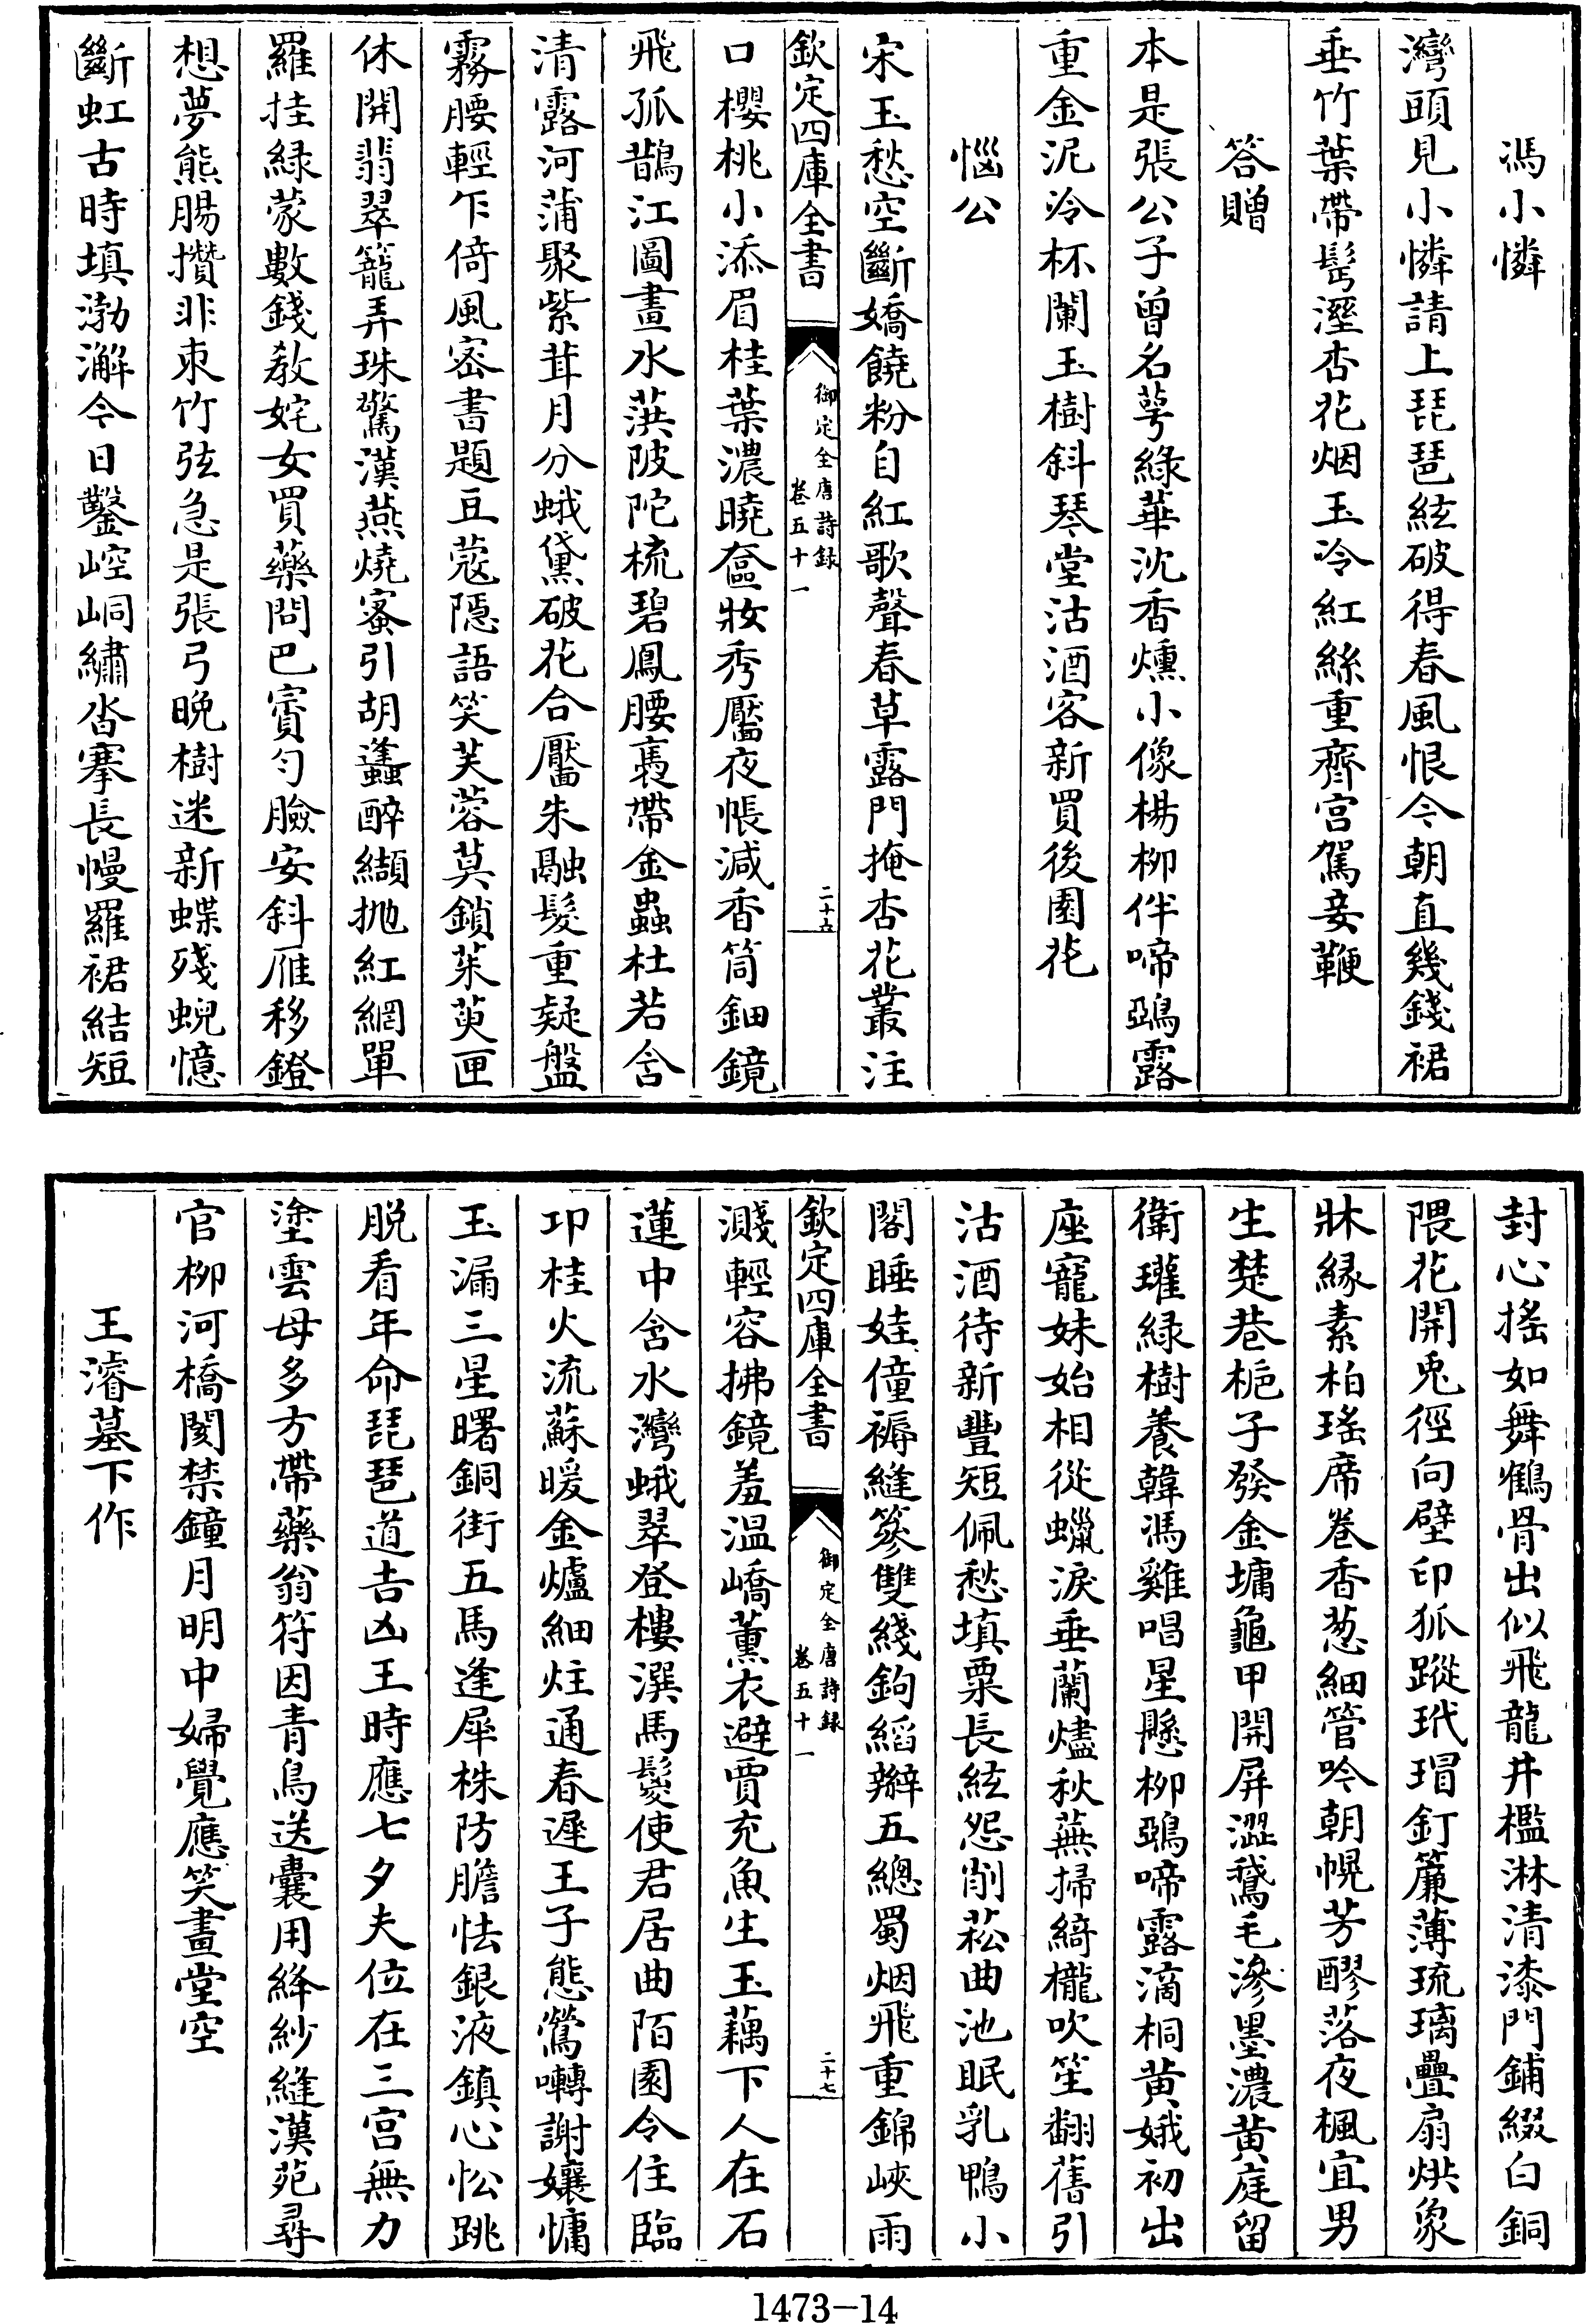 馮小憐
灣頭見小憐請上琵琶絃破得春風恨今朝直幾錢裙
垂竹葉帶髩溼杏花烟玉冷紅絲重齊宮駕妾鞭
答贈
本是張公子曾名萼綠華沈香燻小像楊柳伴啼鵶露
重金泥冷杯闌玉樹斜琴堂沽酒客新買後園花
惱公
宋玉愁空斷嬌饒粉自紅歌聲春草露門掩杏花叢注
欽定四庫全書
御定全唐詩録
卷五十一
二十六
口櫻桃小添眉桂葉濃曉奩妝秀靨夜帳減香筒鈿鏡
飛孤鵲江圖畫水葓陂陀梳碧鳳腰褭帶金蟲杜若含
清露河蒲聚紫茸月分蛾黛破花合靨朱融髮重疑盤
霧腰輕乍倚風密書題豆蔻隱語笑芙蓉莫鎖茱萸匣
休開翡翠籠弄珠驚漢燕燒蜜引胡蠭醉纈抛紅網單
羅挂緑蒙數錢教姹女買藥問巴賨勻臉安斜雁移鐙
想夢熊腸攢非束竹弦急是張弓晚樹迷新蝶殘蜺憶
斷虹古時填渤澥今日鑿崆峒繡沓搴長幔羅裙結短
封心搖如舞鶴骨出似飛龍井檻淋清漆門鋪綴白銅
隈花開兎徑向壁印狐蹤玳瑁釘簾薄琉璃疊扇烘象
牀縁素柏瑤席卷香葱細管吟朝幌芳醪落夜楓宜男
生楚巷梔子發金墉龜甲開屏澀鵞毛滲墨濃黄庭留
衛瓘緑樹養韓馮雞唱星懸柳鵶啼露滴桐黄娥初出
座寵妹始相從蠟淚垂蘭燼秋蕪掃綺櫳吹笙翻舊引
沽酒待新豐短佩愁填粟長絃怨削菘曲池眠乳鴨小
閣睡娃僮褥縫篸雙綫鉤縚辮五總蜀烟飛重錦峽雨
欽定四庫全書
御定全唐詩録
卷五十一
二十七
濺輕容拂鏡羞温嶠薰衣避賈充魚生玉藕下人在石
蓮中含水灣蛾翠登樓潠馬鬉使君居曲陌園令住臨
邛桂火流蘇暖金爐細炷通春遲王子態鶯囀謝孃慵
玉漏三星曙銅街五馬逢犀株防膽怯銀液鎮心忪跳
脱看年命琵琶道吉凶王時應七夕夫位在三宮無力
塗雲母多方帶藥翁符因青鳥送囊用絳紗縫漢苑尋
官柳河橋閡禁鐘月明中婦覺應笑畫堂空
王濬墓下作
1473-14